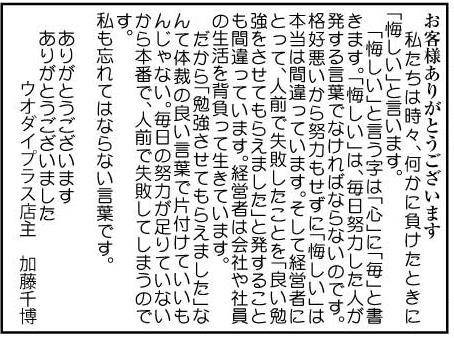 お客様ありがとうございます
　私たちは時々、何かに負けたときに
「悔しい」と言います。
　「悔しい」と言う字は「心」に「毎」と書
きます。「悔しい」は、毎日努力した人が
発する言葉でなければならないのです。
格好悪いから努力もせずに「悔しい」は
本当は間違っています。そして経営者に
とって、人前で失敗したことを「良い勉
強をさせてもらえました」と発すること
も間違っています。経営者は会社や社員
の生活を背負って生きています。
　だから「勉強させてもらえました」な
んて体裁の良い言葉で片付けていいも
んじゃない。毎日の努力が足りていない
から本番で、人前で失敗してしまうので
す。
私も忘れてはならない言葉です。
ありがとうございます
ありがとうございました
ウオダイプラス店主　加藤千博